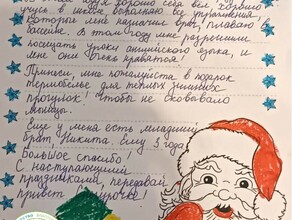 хорошо себя вел, хорошо
учусь в школе, выполняю все упражнения,
которые мне назначил врач, плаваю в
бассейне. В этом году мне разрешили
посещать уроки английского языка, и
мне они очень нравятся!
Принеси, мне пожалуйста в подарок
термобелье для тёплых зимних
прогулок! Чтобы не сковывало
мышцы.
Еще у меня есть младший
брат Никита. Ему 3 года
Большое спасибо!
С наступающими
праздниками, передавай
привет